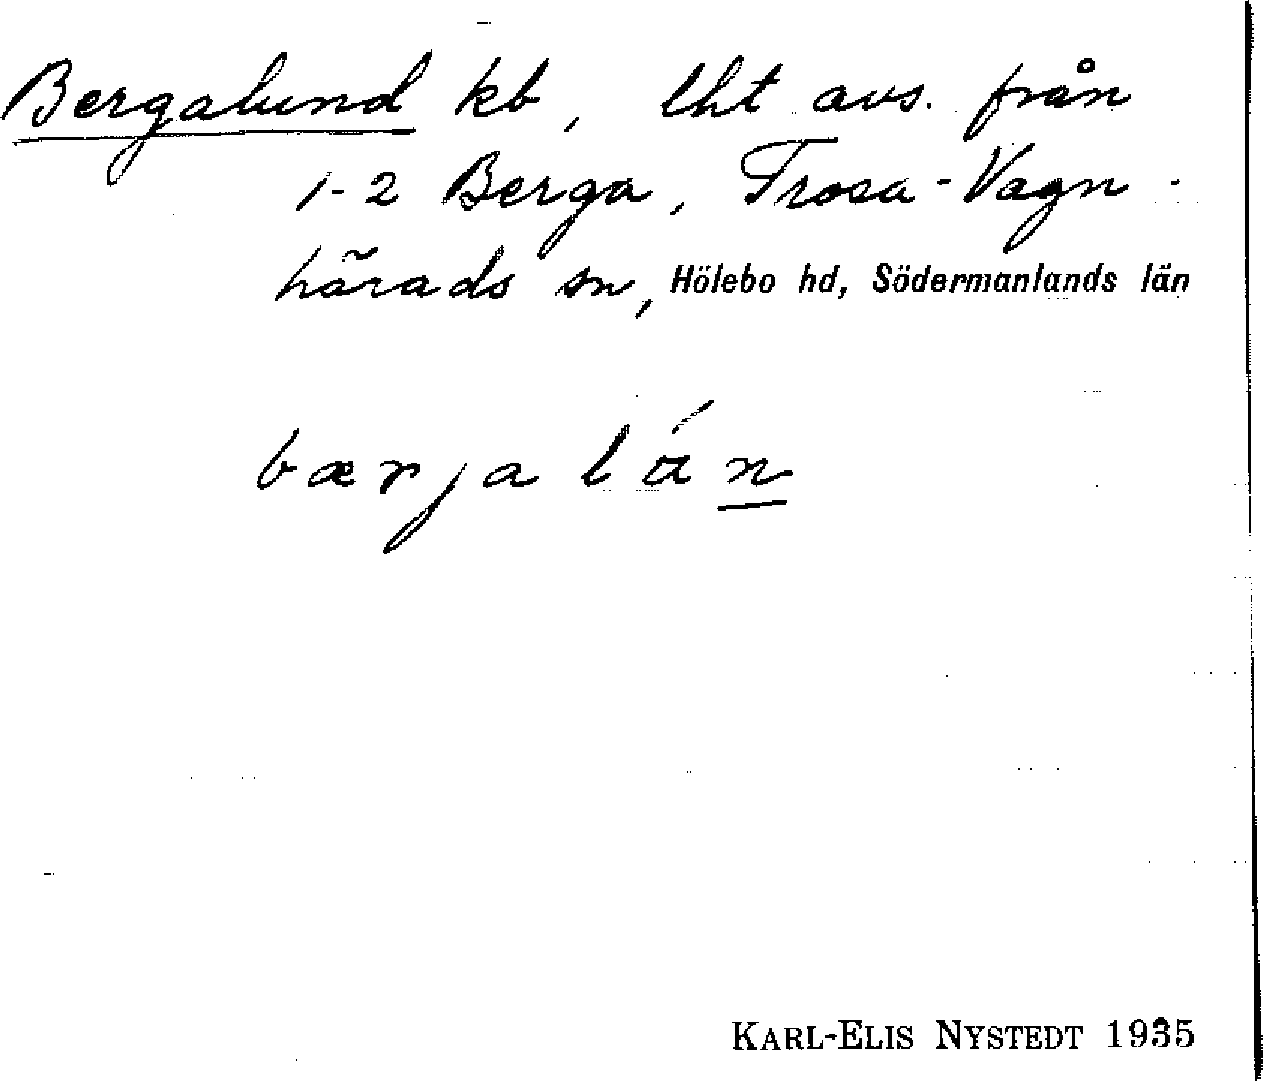 Bergalund kb, lht avs. från
1-2 Berga, Trosa-Vagn-
härads sn, Hölebo hd, Södermanlands län
bærjalán
KARL-ELIS NYSTEDT 1935